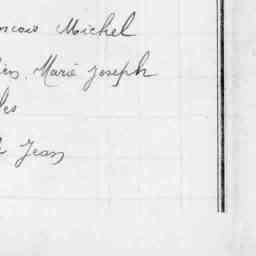 ncois Michel
ien, Marie Joseph
les
Jean